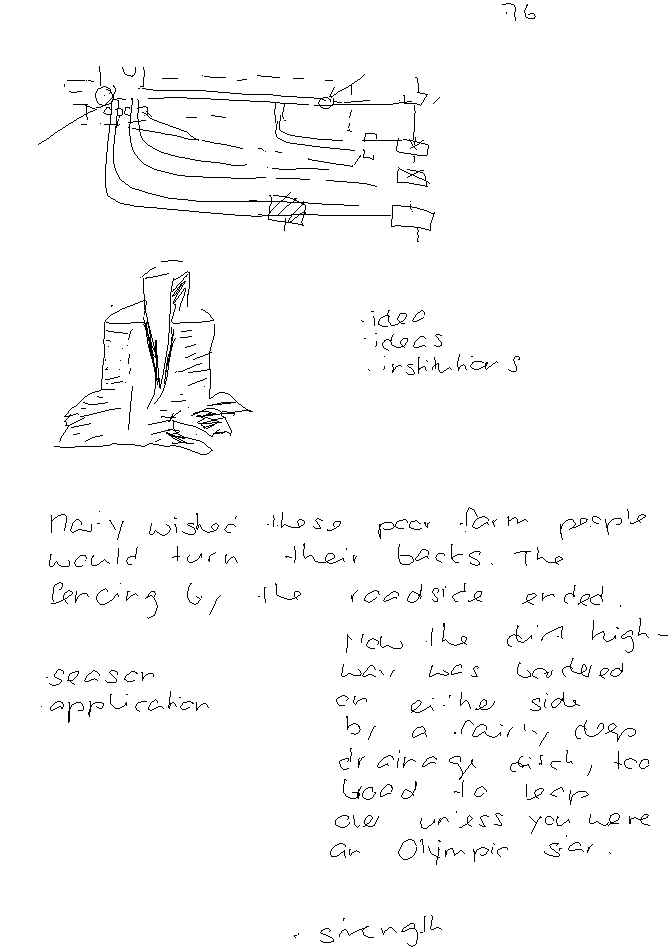 76
· idea
· ideas
· institutions
Harry wished these poor farm people
would turn their backs. The
fencing by the roadside ended.
Now the dirt high-
way was bordered
on either side
by a fairly deep
drainage ditch, too
broad to leap
over unless you were
an Olympic star.
· season
· application
· strength